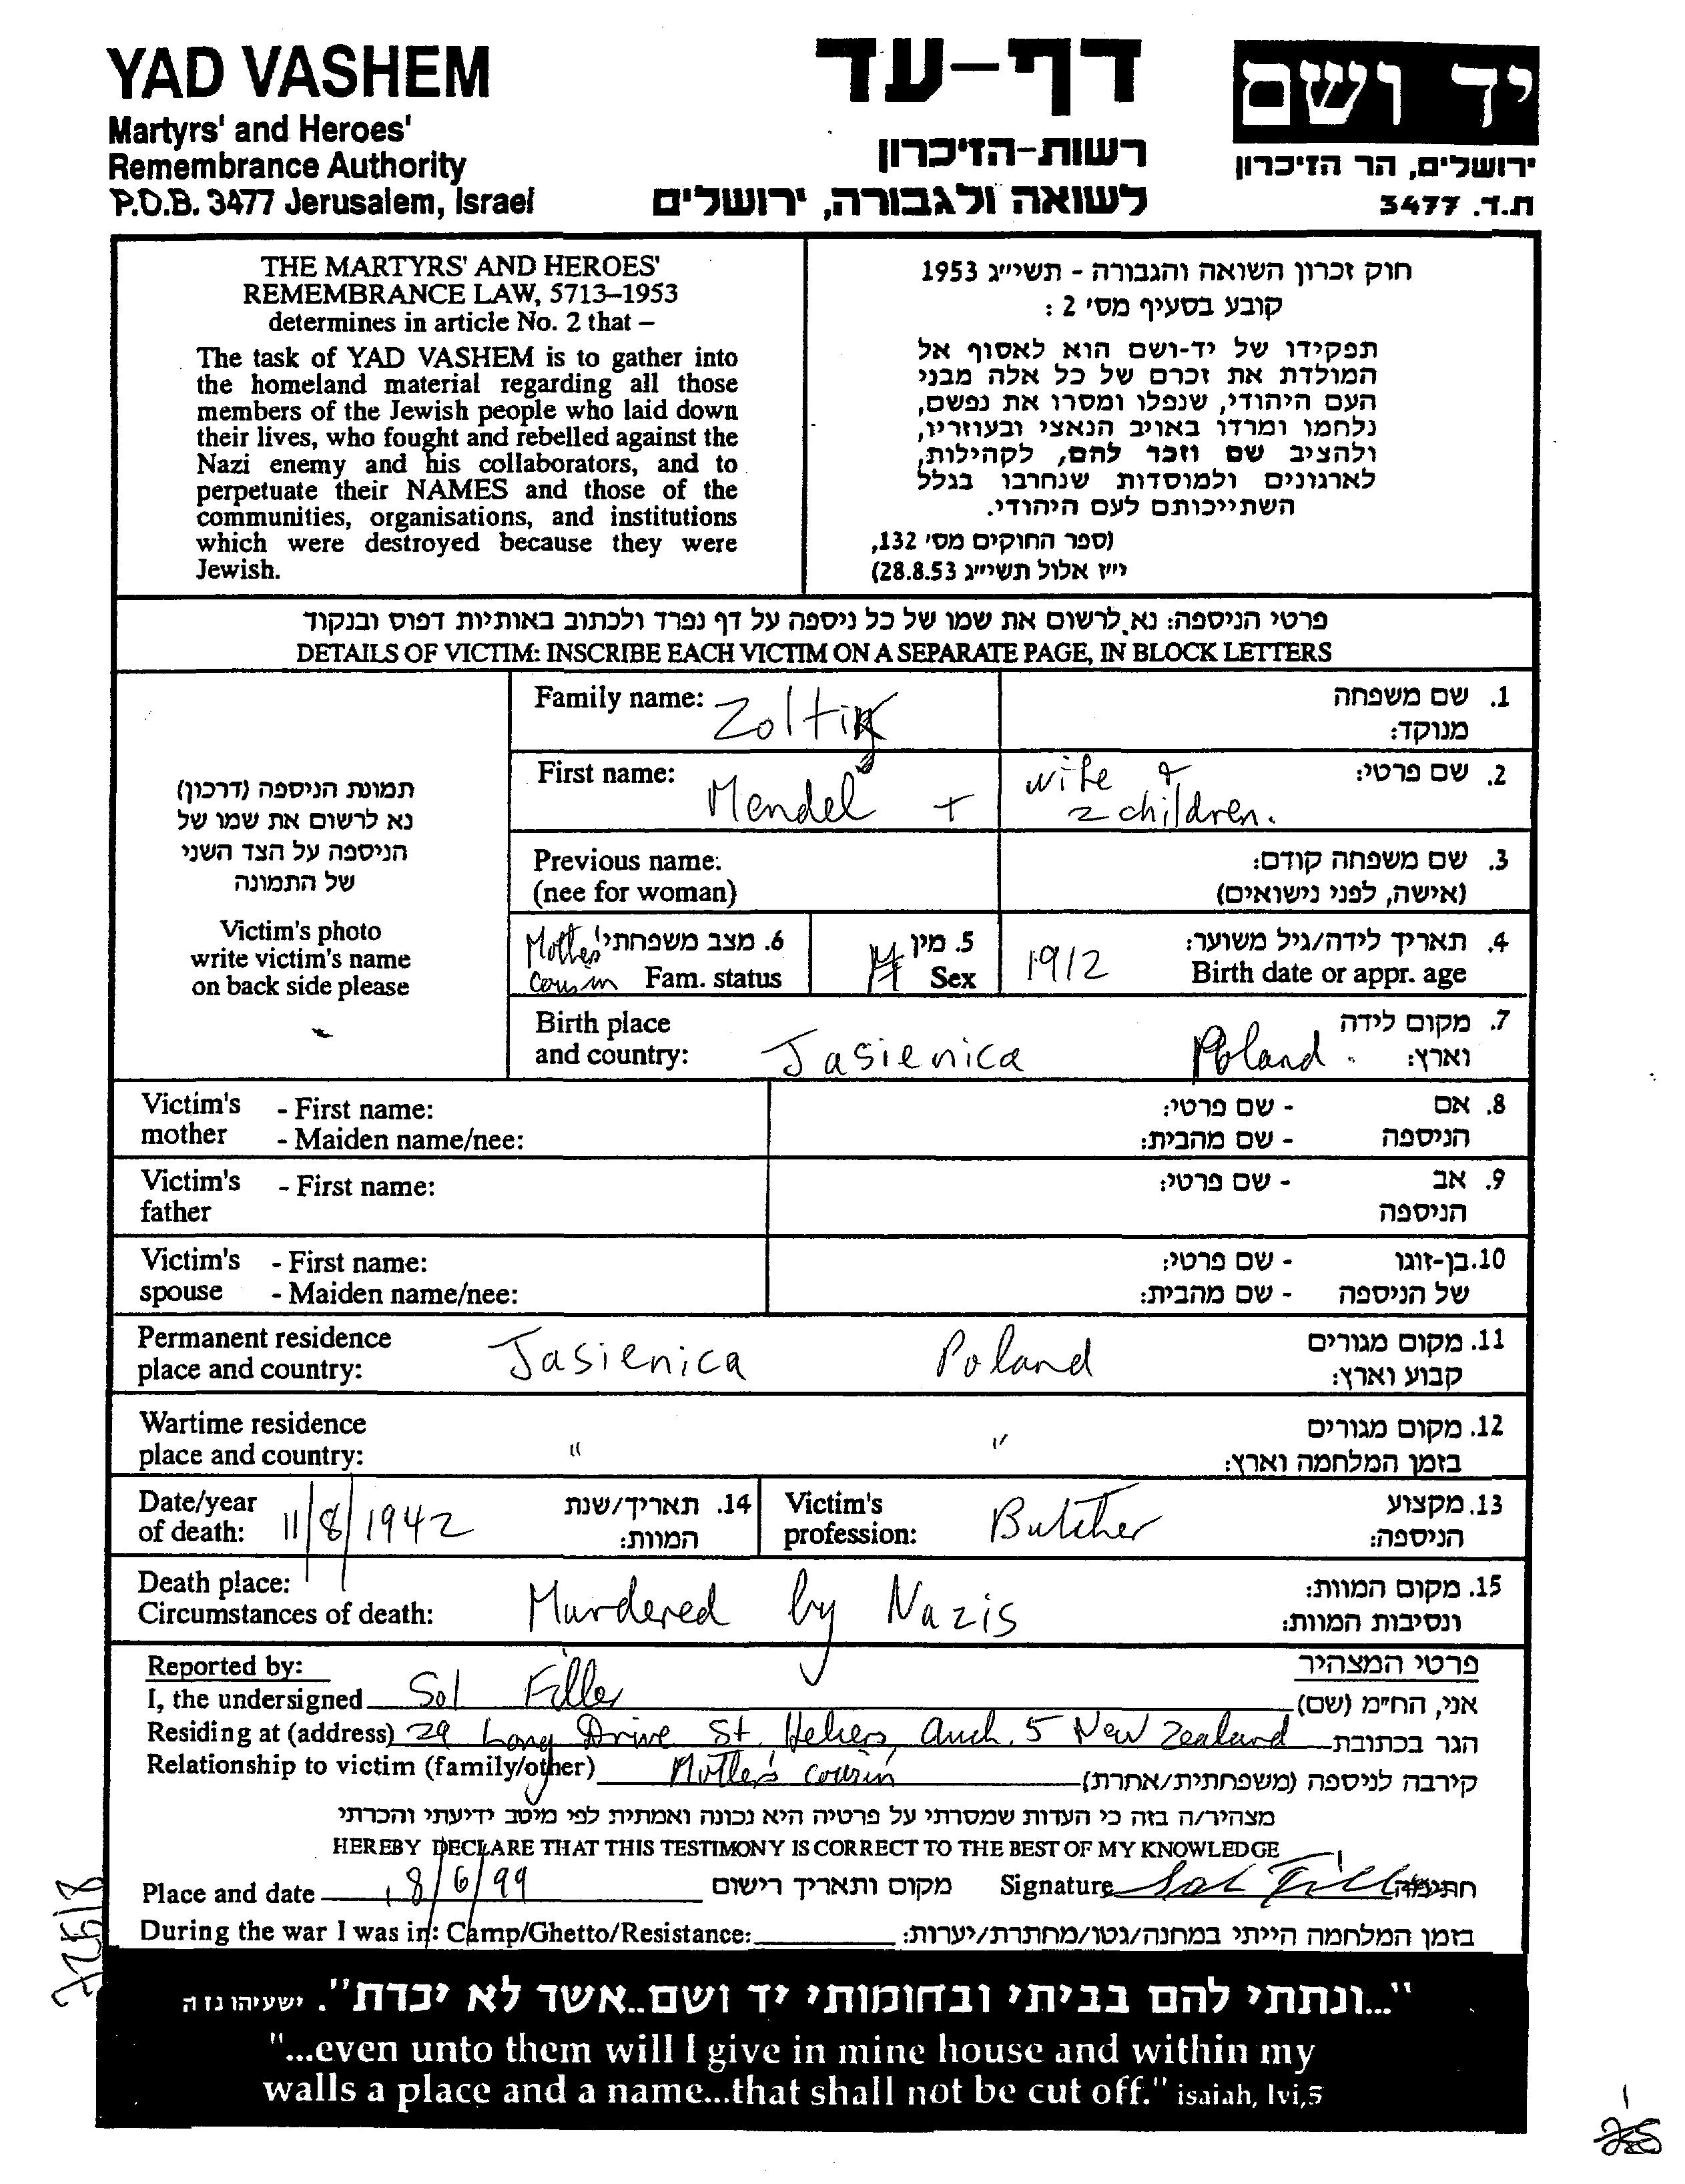 YAD VASHEM
Martyrs' and Heroes'
Remembrance Authority
P.O.B. 3477 Jerusalem, Israel
דף-עד
רשות-הזיכרון
לשואה ולגבורה, ירושלים
יד ושם
ירושלים, הר הזיכרון
ת.ד. 3477
THE MARTYRS' AND HEROES'
REMEMBRANCE LAW, 5713–1953
determines in article No. 2 that –
The task of YAD VASHEM is to gather into
the homeland material regarding all those
members of the Jewish people who laid down
their lives, who fought and rebelled against the
Nazi enemy and his collaborators, and to
perpetuate their NAMES and those of the
communities, organisations, and institutions
which were destroyed because they were
Jewish.
חוק זכרון השואה והגבורה - תשי״ג 1953
קובע בסעיף מס' 2 :
תפקידו של יד-ושם הוא לאסוף אל
המולדת את זכרם של כל אלה מבני
העם היהודי, שנפלו ומסרו את נפשם,
נלחמו ומרדו באויב הנאצי ובעוזריו,
ולהציב שם וזכר להם, לקהילות,
לארגונים ולמוסדות שנחרבו בגלל
השתייכותם לעם היהודי.
(ספר החוקים מס' 132,
י״ז אלול תשי״ג 28.8.53)
פרטי הניספה: נא לרשום את שמו של כל ניספה על דף נפרד ולכתוב באותיות דפוס ובנקוד
DETAILS OF VICTIM: INSCRIBE EACH VICTIM ON A SEPARATE PAGE, IN BLOCK LETTERS
תמונת הניספה (דרכון)
נא לרשום את שמו של
הניספה על הצד השני
של התמונה
Victim's photo
write victim's name
on back side please
Family name: Zoltin
1. שם משפחה
מנוקד:
First name: Mendel + wife & 2 children.
2. שם פרטי:
Previous name:
(nee for woman)
3. שם משפחה קודם:
(אישה, לפני נישואים)
Mothers cousin
6. מצב משפחתי
Fam. status
M
5. מין
Sex
1912
4. תאריך לידה/גיל משוער:
Birth date or appr. age
Birth place
and country: Jasienica Poland.
7. מקום לידה
וארץ:
Victim's - First name:
mother - Maiden name/nee:
8. אם - שם פרטי:
הניספה - שם מהבית:
Victim's - First name:
father
9. אב - שם פרטי:
הניספה
Victim's - First name:
spouse - Maiden name/nee:
10. בן-זוגו - שם פרטי:
של הניספה - שם מהבית:
Permanent residence
place and country: Jasienica Poland
11. מקום מגורים
קבוע וארץ:
Wartime residence
place and country: " "
12. מקום מגורים
בזמן המלחמה וארץ:
Date/year
of death: 11/8/1942
14. תאריך/שנת
המוות:
Victim's
profession: Butcher
13. מקצוע
הניספה:
Death place:
Circumstances of death: Murdered by Nazis
15. מקום המוות:
ונסיבות המוות:
Reported by:
פרטי המצהיר
I, the undersigned Sol Filler אני, החי״מ (שם)
Residing at (address) 29 Long Drive St. Heliers, Auck. 5 New Zealand הגר בכתובת
Relationship to victim (family/other) Mother's cousin קירבה לניספה (משפחתית/אחרת)
מצהיר/ה בזה כי העדות שמסרתי על פרטיה היא נכונה ואמתית לפי מיטב ידיעתי והכרתי
HEREBY DECLARE THAT THIS TESTIMONY IS CORRECT TO THE BEST OF MY KNOWLEDGE
Place and date 8/6/99 מקום ותאריך רישום Signature Sol Filler חתימה
During the war I was in: Camp/Ghetto/Resistance: בזמן המלחמה הייתי במחנה/גטו/מחתרת/יערות:
"...ונתתי להם בביתי ובחומותי יד ושם..אשר לא יכרת". ישעיהו נז ה
"...even unto them will I give in mine house and within my
walls a place and a name...that shall not be cut off." isaiah, lvi,5